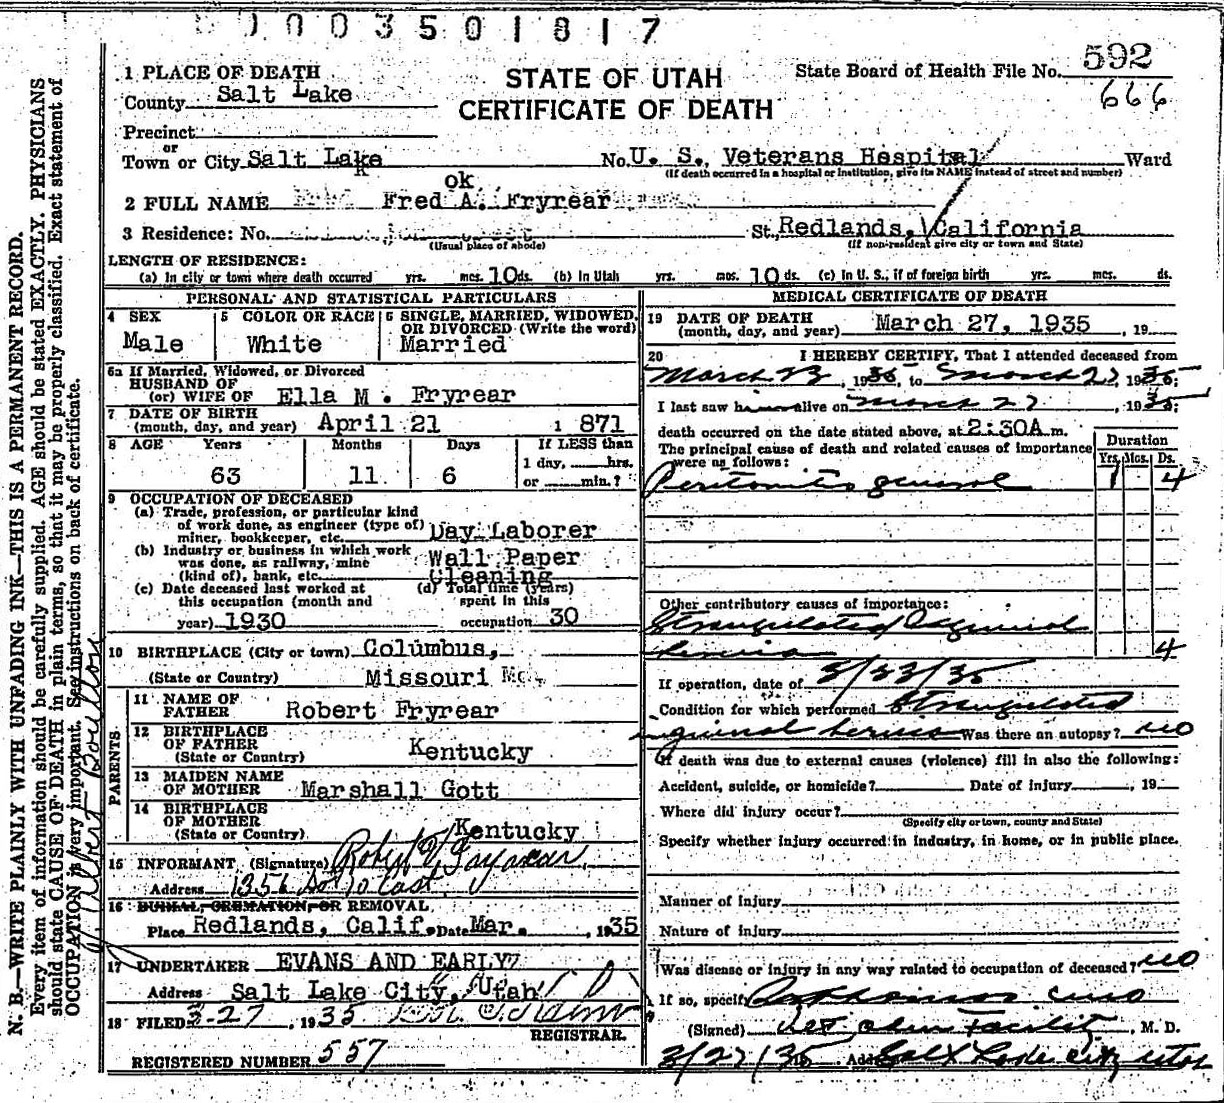 0003501817
STATE OF UTAH
CERTIFICATE OF DEATH
State Board of Health File No. 592
666
1 PLACE OF DEATH
County Salt Lake
Precinct
or
Town or City Salt Lake No. U. S. Veterans Hospital Ward
(If death occurred in a hospital or institution, give its NAME instead of street and number)
ok
2 FULL NAME Fred A. Fryrear
3 Residence: No. St. Redlands, California
(Usual place of abode) (If non-resident give city or town and State)
LENGTH OF RESIDENCE:
(a) In city or town where death occurred yrs. mos. 10 ds. (b) In Utah yrs. mos. 10 ds. (c) In U. S., if of foreign birth yrs. mos. ds.
PERSONAL AND STATISTICAL PARTICULARS
4 SEX
Male
5 COLOR OR RACE
White
6 SINGLE, MARRIED, WIDOWED,
OR DIVORCED (Write the word)
Married
6a If Married, Widowed, or Divorced
HUSBAND OF
(or) WIFE OF Ella M. Fryrear
7 DATE OF BIRTH
(month, day, and year) April 21 1871
8 AGE Years Months Days If LESS than
63 11 6 1 day, hrs.
or min.?
9 OCCUPATION OF DECEASED
(a) Trade, profession, or particular kind
of work done, as engineer (type of)
miner, bookkeeper, etc. Day Laborer
(b) Industry or business in which work
was done, as railway, mine
(kind of), bank, etc. Wall Paper
Cleaning
(c) Date deceased last worked at
this occupation (month and
year) 1930
(d) Total time (years)
spent in this
occupation 30
10 BIRTHPLACE (City or town) Columbus,
(State or Country) Missouri Mo.
PARENTS
11 NAME OF
FATHER Robert Fryrear
12 BIRTHPLACE
OF FATHER
(State or Country) Kentucky
13 MAIDEN NAME
OF MOTHER Marshall Gott
14 BIRTHPLACE
OF MOTHER
(State or Country) Kentucky
15 INFORMANT (Signature) Robert Fryrear
Address 1356 So 10 East
16 BURIAL, CREMATION, OR REMOVAL
Place Redlands, Calif. Date Mar. 1935
17 UNDERTAKER EVANS AND EARLY
Address Salt Lake City, Utah
18 FILED 3-27, 1935
REGISTRAR.
REGISTERED NUMBER 557
MEDICAL CERTIFICATE OF DEATH
19 DATE OF DEATH
(month, day, and year) March 27, 1935, 19
20 I HEREBY CERTIFY, That I attended deceased from
March 23, 1935, to March 27, 1935;
I last saw him alive on March 27, 1935;
death occurred on the date stated above, at 2:30A m.
The principal cause of death and related causes of importance
were as follows:
Duration
Yrs. Mos. Ds.
Peritonitis general 4
Other contributory causes of importance:
Strangulated Inguinal
hernia 4
If operation, date of 3/23/35
Condition for which performed Strangulated
inguinal hernia Was there an autopsy? no
If death was due to external causes (violence) fill in also the following:
Accident, suicide, or homicide? Date of injury, 19
Where did injury occur?
(Specify city or town, county and State)
Specify whether injury occurred in industry, in home, or in public place.
Manner of injury
Nature of injury
Was disease or injury in any way related to occupation of deceased? no
If so, specify
(Signed) Vet Adm Facility, M. D.
3/27/35 Address Salt Lake City Utah
N. B.—WRITE PLAINLY WITH UNFADING INK—THIS IS A PERMANENT RECORD.
Every item of information should be carefully supplied. AGE should be stated EXACTLY. PHYSICIANS
should state CAUSE OF DEATH in plain terms, so that it may be properly classified. Exact statement of
OCCUPATION is very important. See instructions on back of certificate.